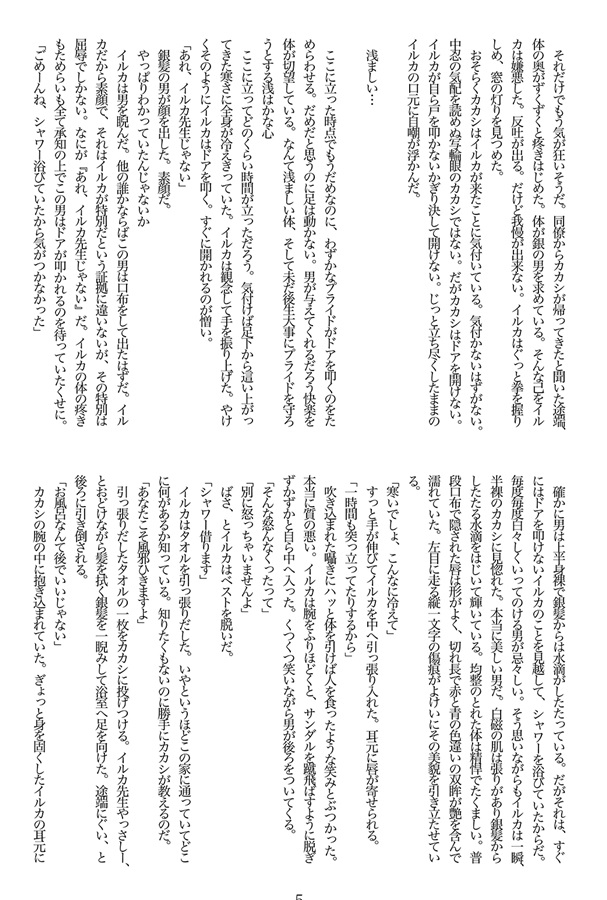 それだけでもう気が狂いそうだ。同僚からカカシが帰ってきたと聞いた途端、
体の奥がずくずくと疼きはじめた。体が銀の男を求めている。そんな己をイル
カは嫌悪した。反吐が出る。だけど我慢が出来ない。イルカはぐっと拳を握り
しめ、窓の灯りを見つめた。
おそらくカカシはイルカが来たことに気付いている。気付かないはずがない。
中忍の気配を読めぬ写輪眼のカカシではない。だがカカシはドアを開けない。
イルカが自ら戸を叩かないかぎり決して開けない。じっと立ち尽くしたままの
イルカの口元に自嘲が浮かんだ。
浅ましい…
ここに立った時点でもうだめなのに、わずかなプライドがドアを叩くのをた
めらわせる。だめだと思うのに足は動かない。男が与えてくれるだろう快楽を
体が切望している。なんて浅ましい体、そして未だ後生大事にプライドを守ろ
うとする浅はかな心
ここに立ってどのくらい時間が立っただろう。気付けば足下から這い上がっ
てきた寒さに全身が冷えきっていた。イルカは観念して手を振り上げた。やけ
くそのようにイルカはドアを叩く。すぐに開かれるのが憎い。
「あれ、イルカ先生じゃない」
銀髪の男が顔を出した。素顔だ。
やっぱりわかっていたんじゃないか
イルカは男を睨んだ。他の誰かならばこの男は口布をして出たはずだ。イル
カだから素顔で、それはイルカが特別だという証拠に違いないが、その特別は
屈辱でしかない。なにが『あれ、イルカ先生じゃない』だ。イルカの体の疼き
もためらいも全て承知の上でこの男はドアが叩かれるのを待っていたくせに。
「ごめーんね、シャワー浴びていたから気がつかなかった」
確かに男は上半身裸で銀髪からは水滴がしたたっている。だがそれは、すぐ
にはドアを叩けないイルカのことを見越して、シャワーを浴びていたからだ。
毎度毎度白々しくいってのける男が忌々しい。そう思いながらもイルカは一瞬、
半裸のカカシに見惚れた。本当に美しい男だ。白磁の肌は張りがあり銀髪から
したたる水滴をはじいて輝いている。均整のとれた体は精悍でたくましい。普
段口布で隠された唇は形がよく、切れ長で赤と青の色違いの双眸が艶を含んで
濡れていた。左目に走る縦一文字の傷痕がよけいにその美貌を引き立たせてい
る。
「寒いでしょ、こんなに冷えて」
すっと手が伸びてイルカを中へ引っ張り入れた。耳元に唇が寄せられる。
「一時間も突っ立ってたりするから」
吹き込まれた囁きにハッと体を引けば人を食ったような笑みとぶつかった。
本当に質の悪い。イルカは腕をふりほどくと、サンダルを蹴飛ばすように脱ぎ
ずかずかと自ら中へ入った。くつくつ笑いながら男が後ろをついてくる。
「そんな怒んなくったって」
「別に怒っちゃいませんよ」
ばさ、とイルカはベストを脱いだ。
「シャワー借ります」
イルカはタオルを引っ張りだした。いやというほどこの家に通っていてどこ
に何があるか知っている。知りたくもないのに勝手にカカシが教えるのだ。
「あなたこそ風邪ひきますよ」
引っ張りだしたタオルの一枚をカカシに投げつける。イルカ先生やっさしー、
とおどけながら髪を拭く銀髪を一睨みして浴室へ足を向けた。途端にぐい、と
後ろに引き倒される。
「お風呂なんて後でいいじゃない」
カカシの腕の中に抱き込まれていた。ぎょっと身を固くしたイルカの耳元に
5